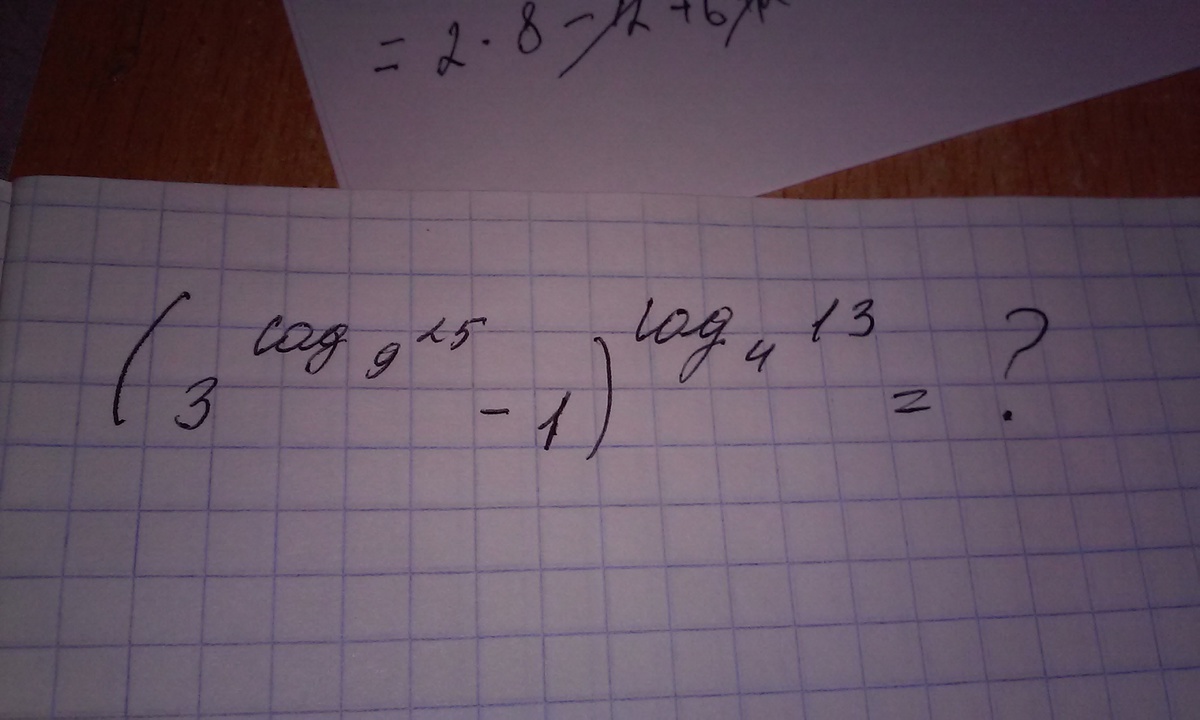 = 2 · 8 - 12 + 6
(3^log_9 25 - 1)^log_4 13 = ?